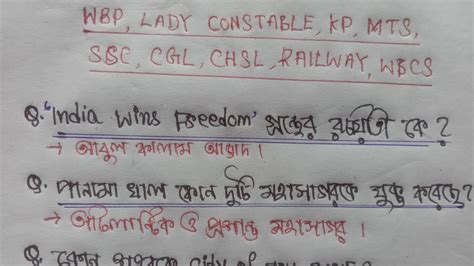 WBP, LADY CONSTABLE, KP, MTS,
SSC, CGL, CHSL, RAILWAY, WBCS
Q. 'India Wins Freedom' গ্রন্থের রচয়িতা কে?
→ আবুল কালাম আজাদ।
Q. পানামা খাল কোন দুটি মহাসাগরকে যুক্ত করেছে?
→ আটলান্টিক ও প্রশান্ত মহাসাগর।
Q. কোন শহরকে city of